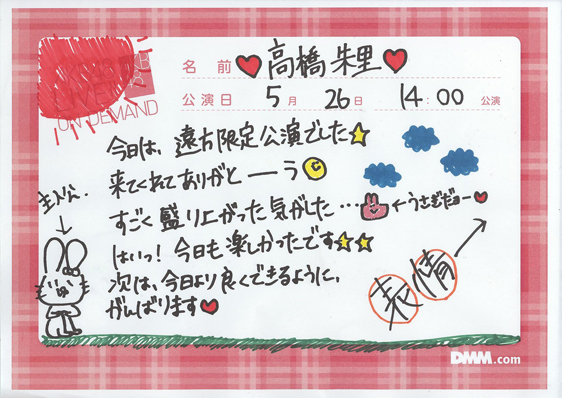 ON DEMAND
名前 ♥高橋朱里♥
公演日 5月 26日 14:00 公演
今日は、遠方限定公演でした☆
来てくれてありがとーう
すごく盛り上がった気がした…←うさぎだよー♥
はいっ!今日も楽しかったです☆☆
次は、今日より良くできるように、
がんばります♥
主人公.
↓
表情
DMM.com